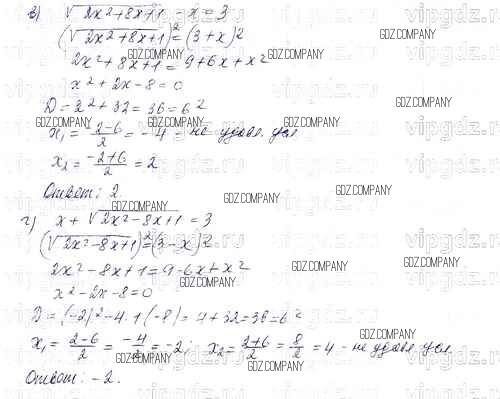 в) √2x²+8x+1 - x = 3
(√2x²+8x+1)² = (3+x)²
2x²+8x+1 = 9+6x+x²
x²+2x-8=0
D = 2²+32 = 36 = 6²
x₁ = -2-6/2 = -4 - не удовл. усл
x₂ = -2+6/2 = 2
Ответ: 2.
г) x + √2x²-8x+1 = 3
(√2x²-8x+1)² = (3-x)²
2x²-8x+1 = 9-6x+x²
x²-2x-8=0
D = (-2)²-4·1·(-8) = 4+32=36=6²
x₁ = 2-6/2 = -4/2 = -2; x₂ = 2+6/2 = 8/2 = 4 - не удовл. усл.
Ответ: -2.
vipgdz.ru
GDZ.COMPANY